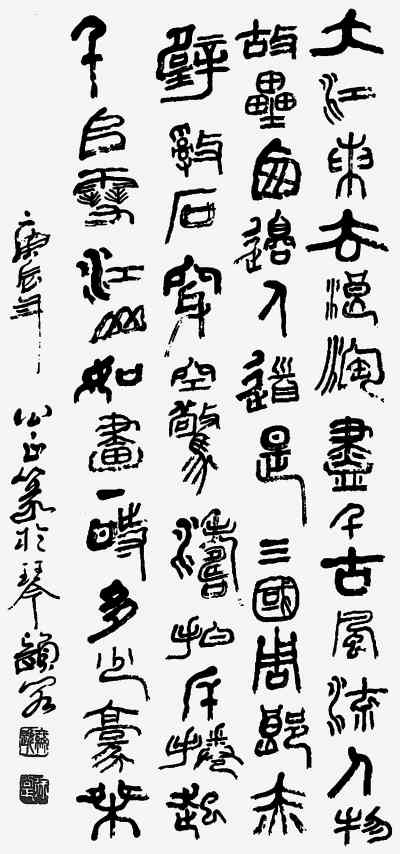 大江東去浪淘盡千古風流人物
故壘西邊人道是三國周郎赤
壁亂石穿空驚濤拍岸捲起
千堆雪江山如畫一時多少豪桀
庚辰年 公正篆於琴韻